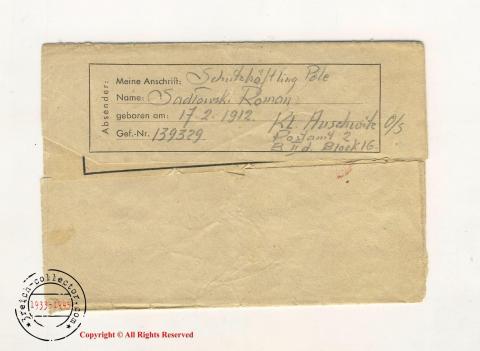 Absender:
Meine Anschrift: Schutzhäftling Pole
Name: Sadłowski Roman
geboren am: 17. 2. 1912. Kl. Auschwitz O/S
Gef.-Nr. 139329 Postamt 2
B II d. Block 16
3reich-collector.com
1933-1945
Copyright © All Rights Reserved